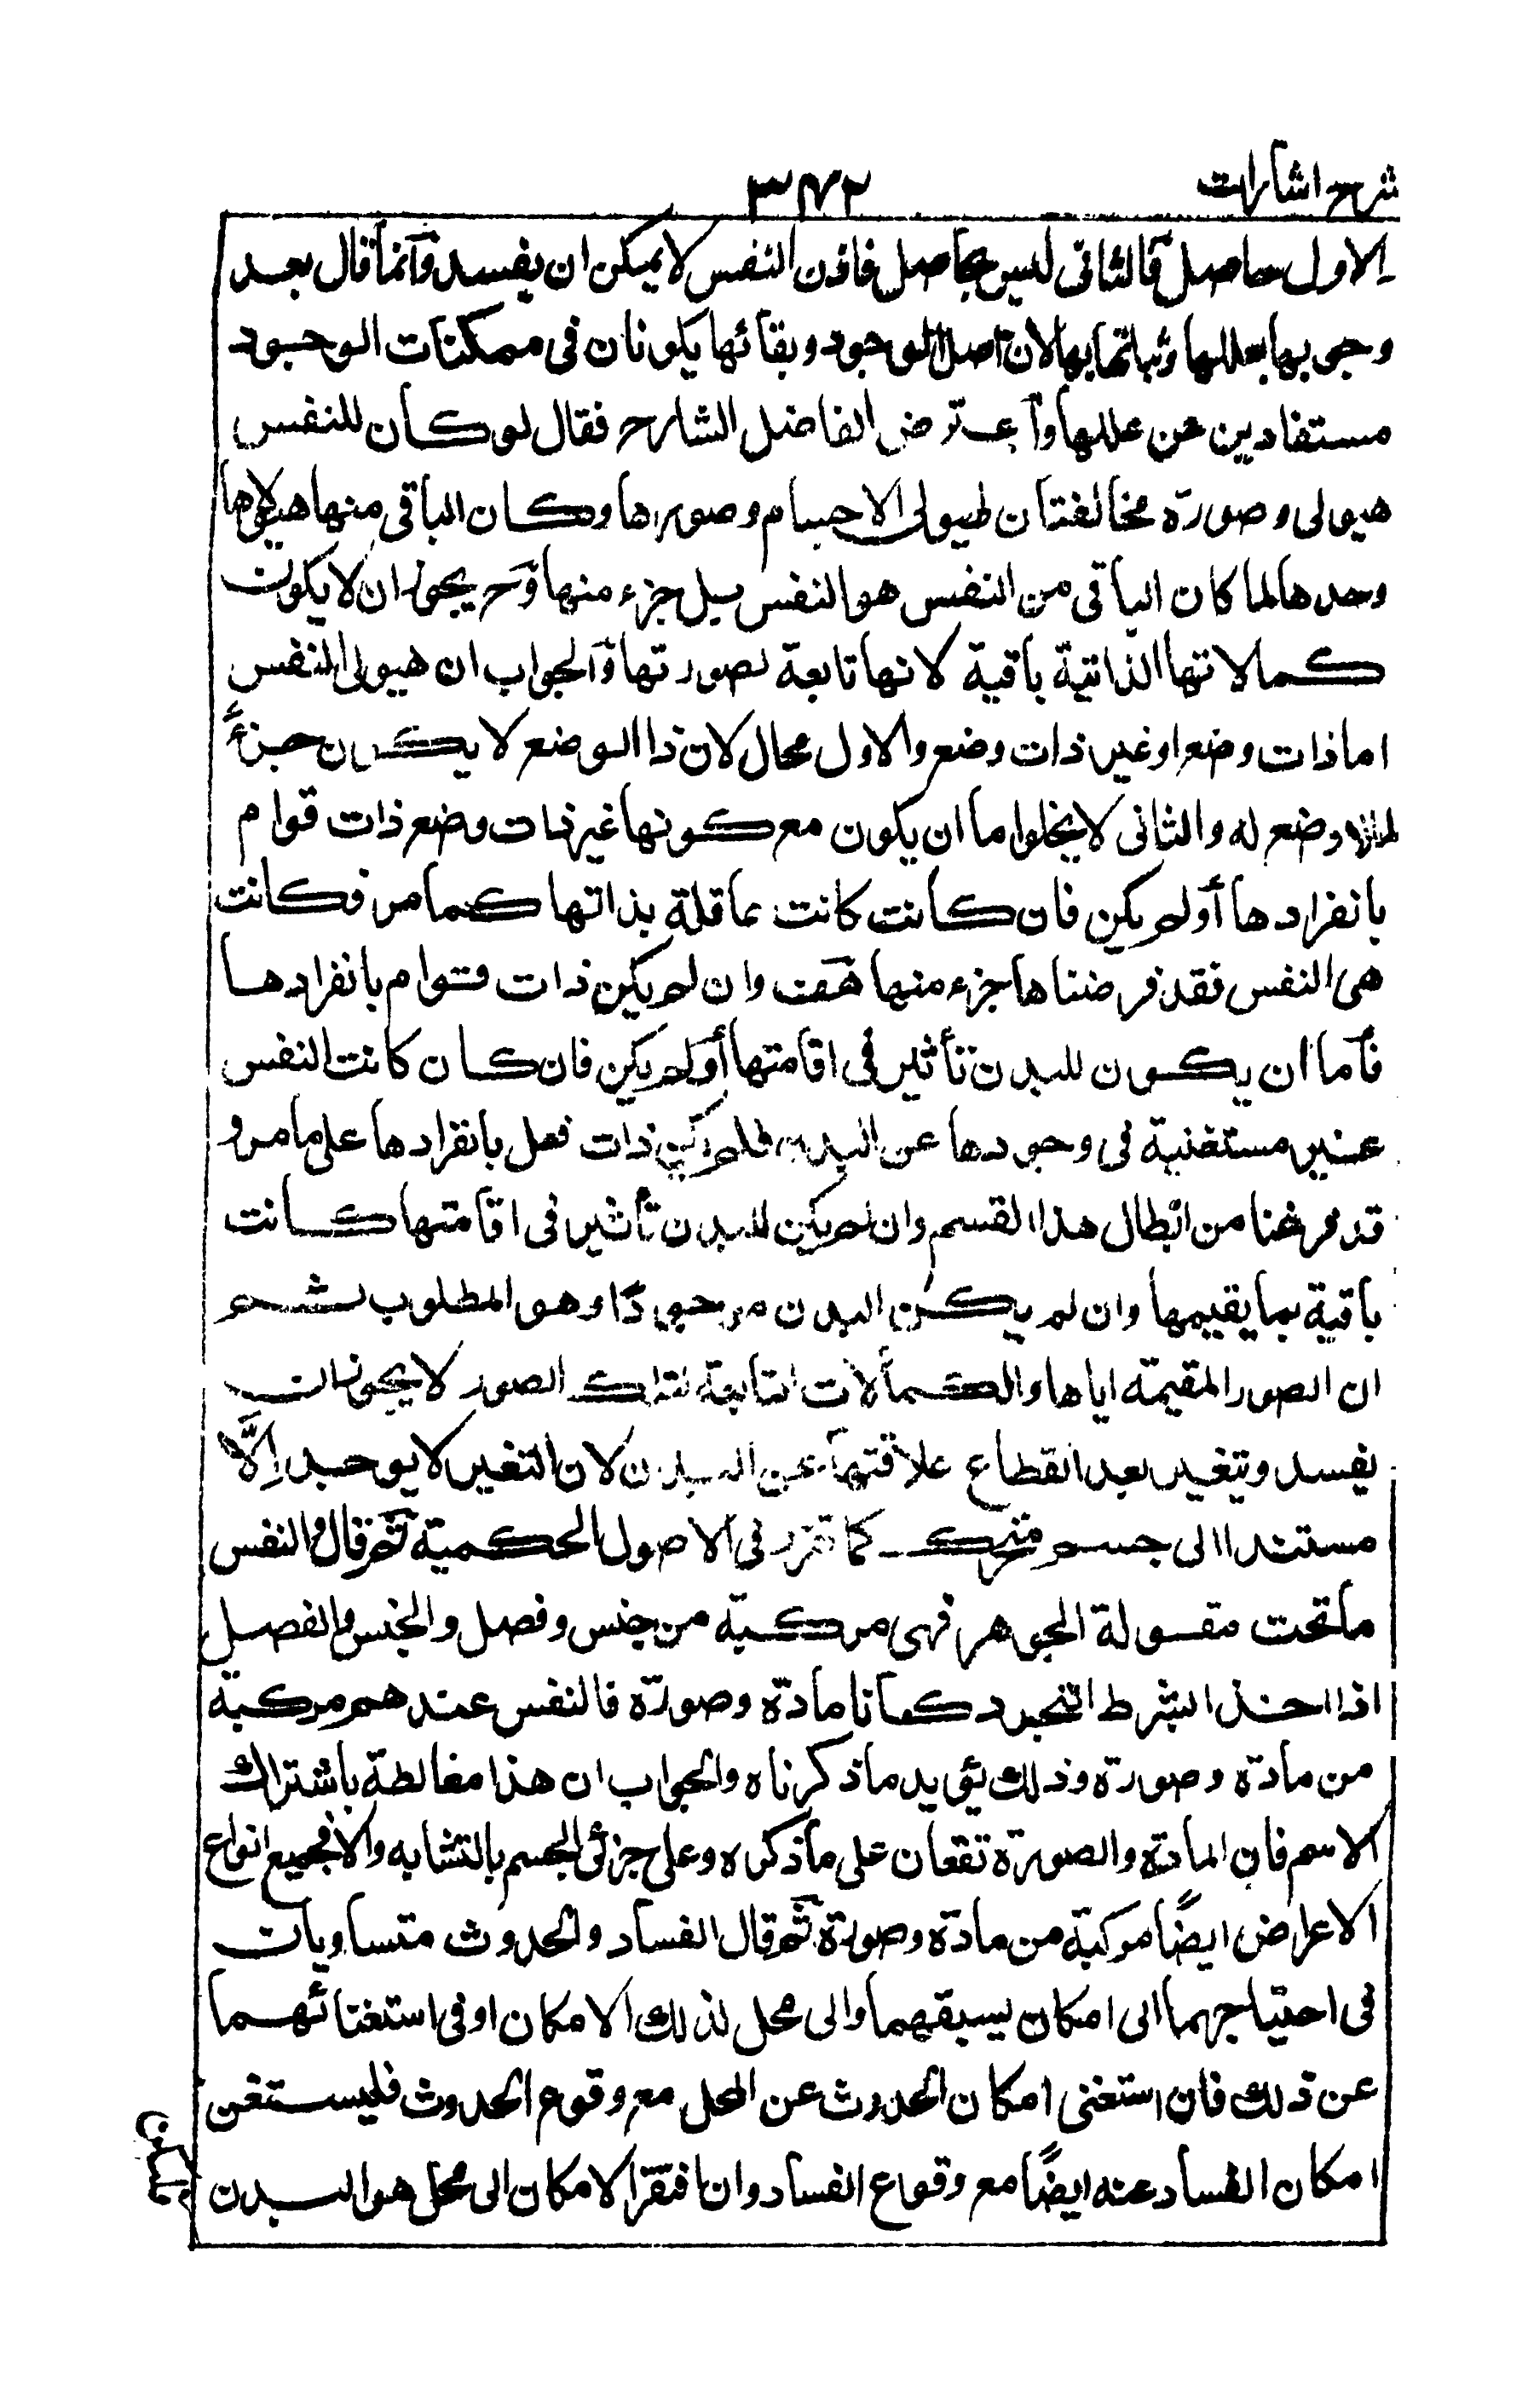 شرح اشارات
٣٧٢
الاول حاصل والثانى ليس بحاصل فاذن النفس لا يمكن ان يفسد وانما قال بعد
وجوبها بعللها وثباتها بها لان اصل الوجود وبقائها يكونان فى ممكنات الوجود
مستفادين عن عللها واعترض الفاضل الشارح فقال لو كان للنفس
هيولى وصورة مخالفتان لهيولى الاجسام وصورها وكان الباقى منها هيولاها
وحدها لما كان الباقى من النفس هو النفس بل جزء منها وح يجوز ان لا يكون
كمالاتها الذاتية باقية لانها تابعة لصورتها والجواب ان هيولى النفس
اما ذات وضع او غير ذات وضع والاول محال لان ذا الوضع لا يكون جزءً
لما لا وضع له والثانى لا يخلو اما ان يكون مع كونها غير ذات وضع ذات قوام
بانفرادها أو لم يكن فان كانت كانت عاقلة بذاتها كما مر فكانت
هى النفس فقد فرضناها جزء منها هف وان لم يكن ذات قوام بانفرادها
فاما ان يكون للبدن تأثير فى اقامتها أو لم يكن فان كان كانت النفس
غير مستغنية فى وجودها عن البدن فلم يكن ذات فعل بانفرادها على ما مر و
قد فرغنا من ابطال هذا القسم وان لم يكن للبدن تأثير فى اقامتها كانت
باقية بما يقيمها وان لم يكن البدن موجودًا وهو المطلوب ثم
ان الصور المقيمة اياها والكمالات التابعة لتلك الصور لا يجوز ان
يفسد ويتغير بعد انقطاع علاقتها عن البدن لان التغير لا يوجد إلّا
مستندا الى جسم متحرك كما تقرر فى الاصول الحكمية ثم قال والنفس
ما تحت مقولة الجوهر فهى مركبة من جنس وفصل والجنس والفصل
اذا اخذا بشرط التجرد كانا مادة وصورة فالنفس عندهم مركبة
من مادة وصورة وذلك يؤيد ما ذكرناه والجواب ان هذا مغالطة باشتراك
الاسم فان المادة والصورة تقعان على ما ذكره وعلى جزئى الجسم بالتشابه والا فجميع انواع
الاعراض ايضًا مركبة من مادة وصورة ثم قال الفساد والحدوث متساويان
فى احتياجهما الى امكان يسبقهما والى محل لذلك الامكان او فى استغنائهما
عن ذلك فان استغنى امكان الحدوث عن المحل مع وقوع الحدوث فليستغن
امكان الفساد عنه ايضًا مع وقوع الفساد وان افتقر الامكان الى محل هو البدن